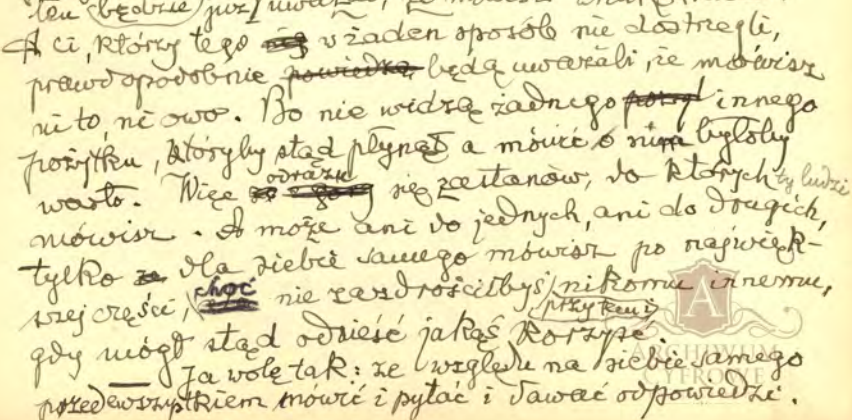 ten będzie już uważał, że mówisz
A ci, którzy tego nie w żaden sposób nie dostrzegli,
prawdopodobnie powiedzą, będą uważali, że mówisz
ni to, ni owo. Bo nie widzą żadnego innego
pożytku, któryby stąd płynął a mówić o nim byłoby
warto. Więc odrazu się zastanów, do których ty ludzi
mówisz. A może ani do jednych, ani do drugich,
tylko dla siebie samego mówisz po najwięk-
szej części, choć nie zazdrościłbyś nikomu innemu,
gdy mógł stąd odnieść jakąś przytem korzyść.
Ja wolę tak: ze względu na siebie samego
przedewszystkiem mówić i pytać i dawać odpowiedzi.
ARCHIWUM
CYFROWE